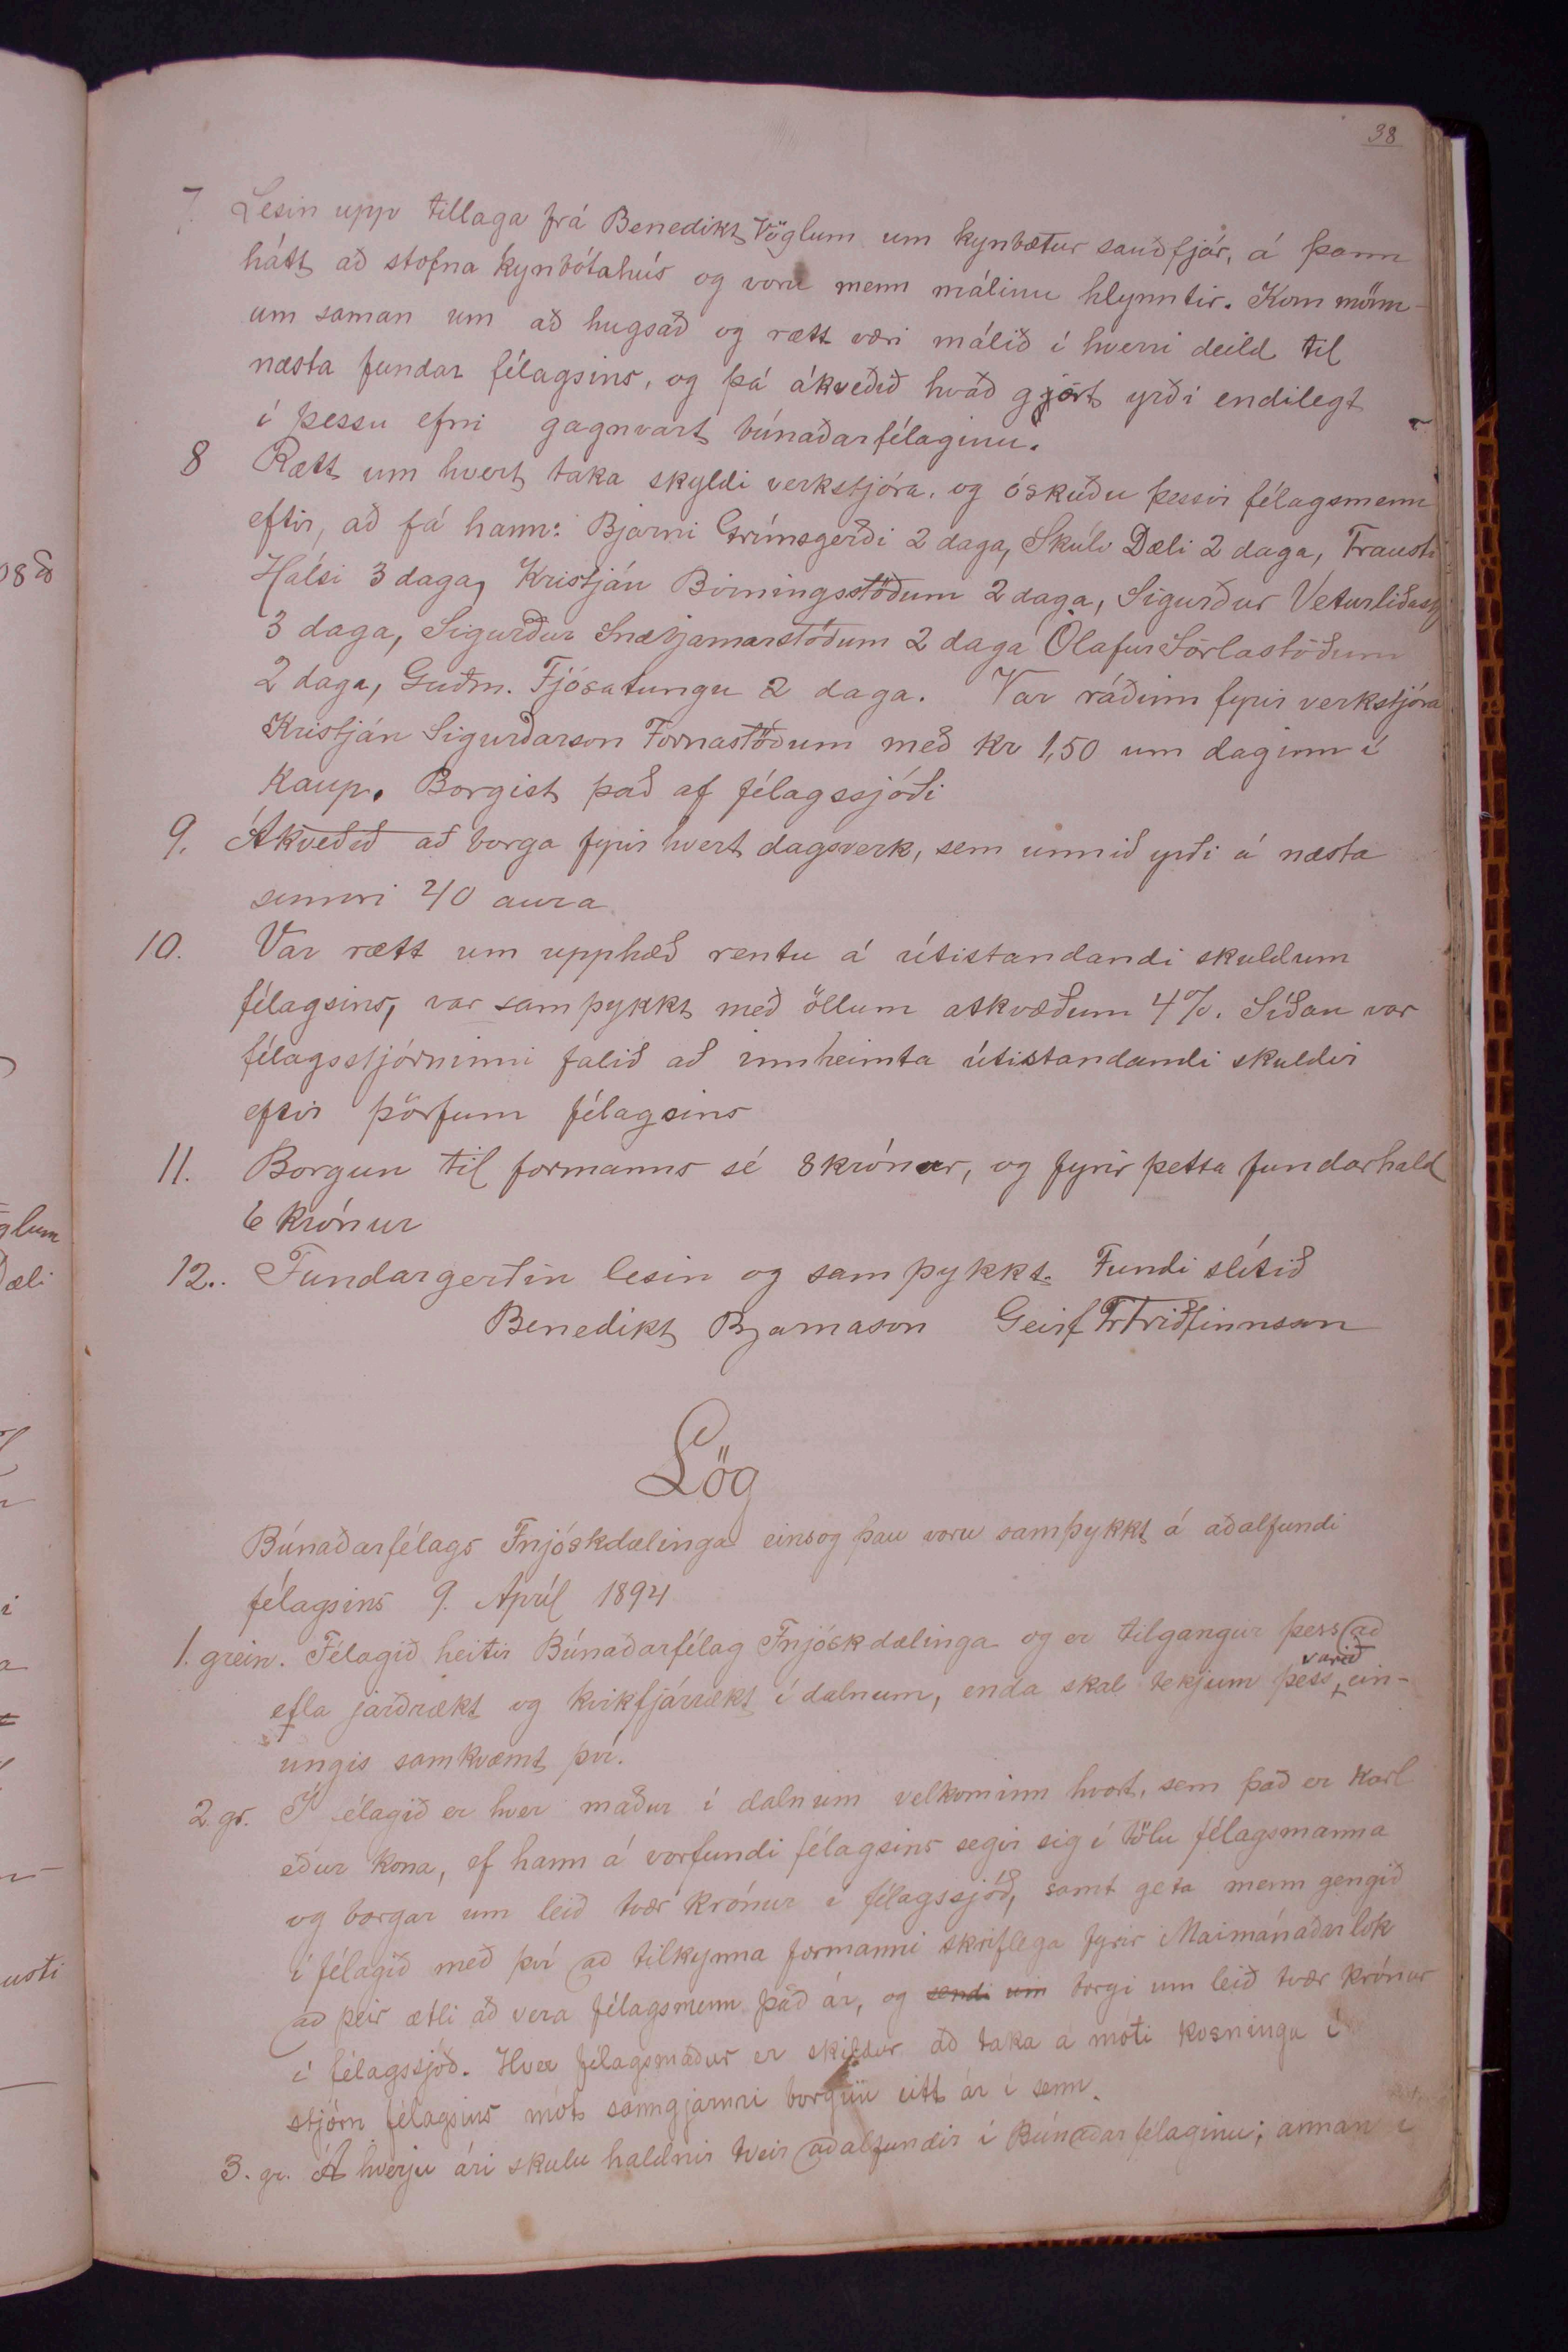 38
7. Lesin upp tillaga frá Benedikt Vöglum um kynbætur sauðfjár, á þann
hátt að stofna kynbótahús og voru menn málinu hlynntir. Kom mönn-
um saman um að hugsað og rætt væri málið í hverri deild til
næsta fundar félagsins, og þá ákveðið hvað gjört yrði endilegt
í þessu efni gagnvart búnaðarfélaginu.
8 Rætt um hvert taka skyldi verkstjóra, og óskuðu þessir félagsmenn
eftir, að fá hann: Bjarni Grímsgerði 2 daga, Skúli Dæli 2 daga, Trausti
Hálsi 3 daga, Kristján Birningsstöðum 2 daga, Sigurður Veturliðast
3 daga, Sigurður Snæbjarnarstöðum 2 daga Ólafur Sörlastöðum
2 daga, Guðm. Fjósatungu 2 daga. Var ráðinn fyrir verkstjóra
Kristján Sigurðarson Fornastöðum með kr 1,50 um daginn í
kaup. Borgist það af félagssjóði
9. Ákveðið að borga fyrir hvert dagsverk, sem unnið yrði á næsta
sumri 40 aura
10. Var rætt um upphæð rentu á útistandandi skuldum
félagsins, var samþykkt með öllum atkvæðum 4%. Síðan var
félagsstjórninni falið að innheimta útistandandi skuldir
eftir þörfum félagsins
11. Borgun til formanns sé 8 krónur, og fyrir þetta fundarhald
6 krónur
12.. Fundargerðin lesin og samþykkt. Fundi slitið
Benedikt Bjarnason Geirf Tr Friðfinnsson
Lög
Búnaðarfélags Fnjóskdælinga einsog þau voru samþykkt á aðalfundi
félagsins 9. Apríl 1894
1. grein. Félagið heitir Búnaðarfélag Fnjóskdælinga og er tilgangur þess að
efla jarðrækt og kvikfjárrækt í dalnum, enda skal tekjum þess varið ein-
ungis samkvæmt því.
2. gr. Í félagið er hver maður í dalnum velkominn hvort, sem það er karl
eður kona, ef hann á vorfundi félagsins segir sig í tölu félagsmanna
og borgar um leið tvær krónur í félagssjóð, samt geta menn gengið
í félagið með því að tilkynna formanni skriflega fyrir Maimánaðarlok
að þeir ætli að vera félagsmenn það ár, og sendi um borgi um leið tvær krónur
í félagssjóð. Hver félagsmaður er skildur að taka á móti kosningu í
stjórn félagsins mót sanngjarnri borgun eitt ár í senn.
3. gr. Á hverju ári skulu haldnir tveir aðalfundir í Búnaðarfélaginu; annan í